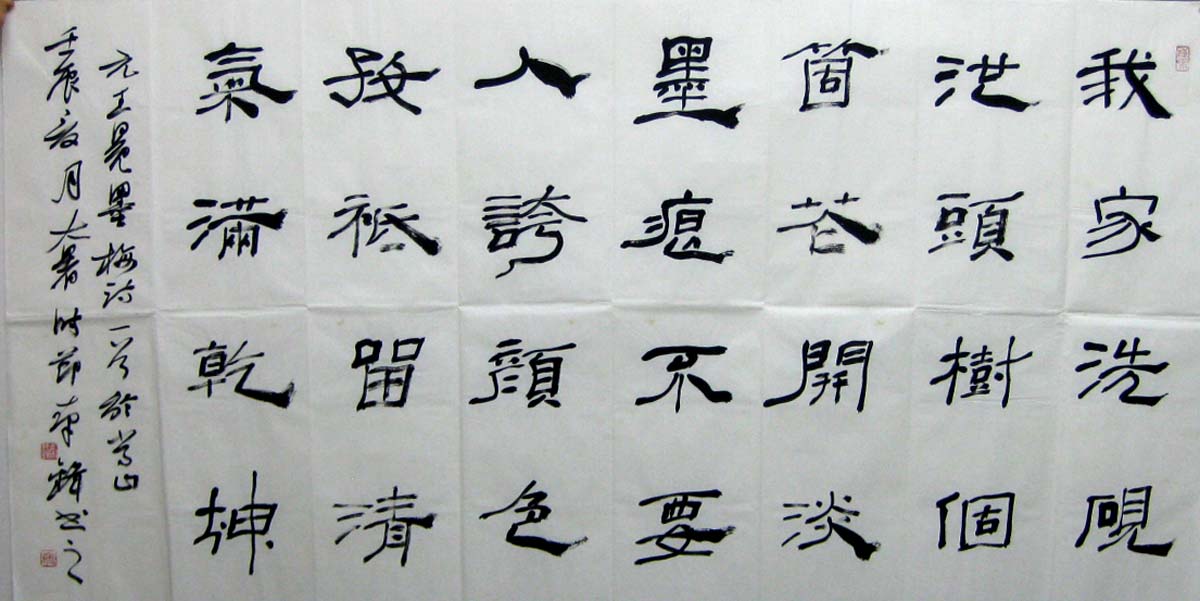 我家洗硯
池頭樹個
箇花開淡
墨痕不要
人誇顏色
好祇留清
氣滿乾坤
元王冕墨梅詩一首於嵩山
壬辰夏月大暑時節書之